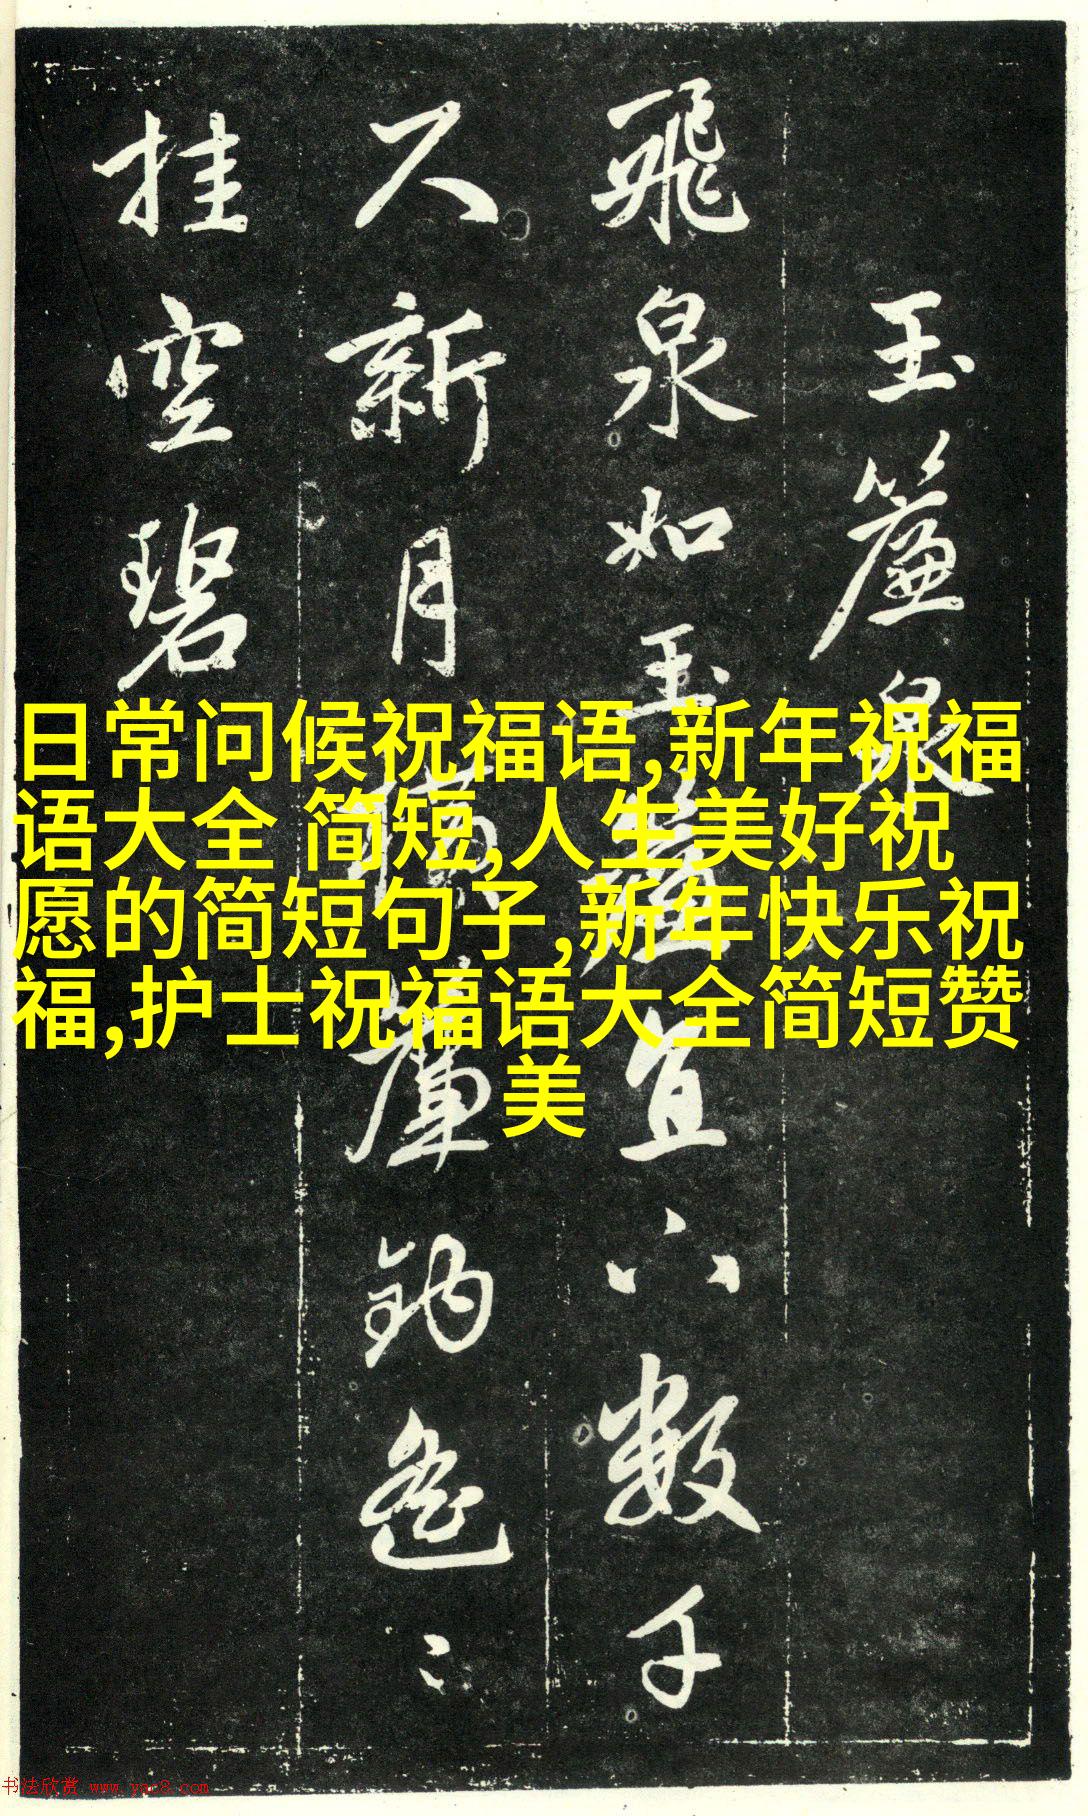 玉簾泉
飛泉如玉簾直下數千
尺新月橫簾鈎遙〻
挂空碧
日常问候祝福语,新年祝福
语大全 简短,人生美好祝
愿的简短句子,新年快乐祝
福,护士祝福语大全简短赞
美
书法欣赏 www.yac8.com